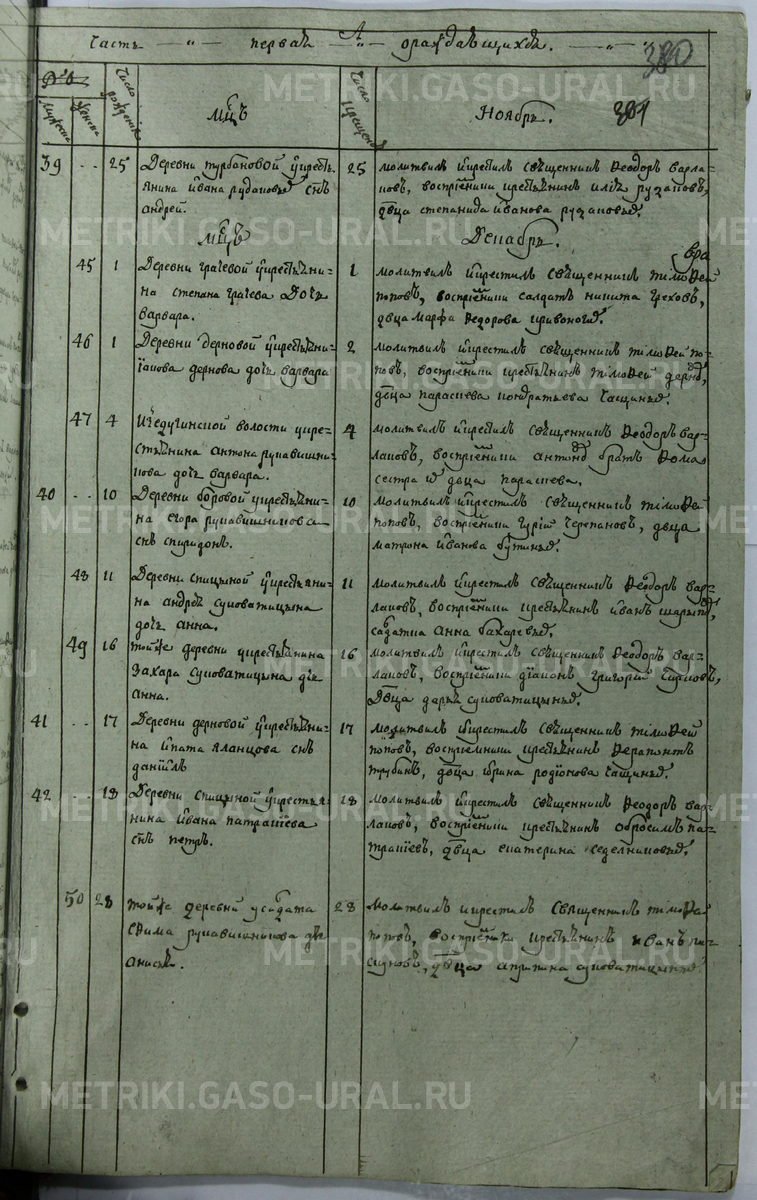 Часть — " — первая — " — о раждающихся. — " — "
380
№о
мужеска
женска
Число рождения
Мцъ
Число крещения
Ноябрь.
381
39 .. 25 Деревни турбановой у крестьянина ивана рудакова снъ андрей.
25 молитвилъ и крестилъ священникъ Ѳеодоръ варлаковъ, воспрiемники крестьянинъ илья рузановъ, двца степанида иванова рузановыхъ.
Мцъ
Декабрь.
45 1 Деревни грачевой у крестьянина степана грачева дочь варвара.
1 молитвилъ и крестилъ священникъ тимоѲей поповъ, воспрiемники солдатъ никита греховъ, двца марфа Ѳедорова кривоногихъ.
46 1 Деревни дерновой у крестьянина iакова дернова дочь варвара
2 молитвилъ и крестилъ священникъ тимоѲей поповъ, воспрiемники крестьянинъ тимоѲей дерновъ, двца параскева кондратьева чащиныхъ.
47 4 Ичедугинской волости у крестьянина антона рукавишникова дочь варвара.
4 молитвилъ и крестилъ священникъ Ѳеодоръ варлаковъ, воспрiемники антоновъ братъ Ѳома сестра его двца параскева.
40 .. 10 Деревни боровой у крестьянина егора рукавишникова снъ спиридонъ.
10 молитвилъ и крестилъ священникъ тимоѲей поповъ, воспрiемники гурiй черепановъ, двца матрона иванова бутиныхъ.
48 11 Деревни спицыной у крестьянина андрея суковатицына дочь анна.
11 молитвилъ и крестилъ священникъ Ѳеодоръ варлаковъ, воспрiемники крестьянинъ иванъ шарыповъ, солдатка анна бахаревыхъ.
49 16 тойже деревни у крестьянина Захара суковатицына дчь анна.
16 молитвилъ и крестилъ священникъ Ѳеодоръ варлаковъ, воспрiемники дiаконъ григорiй сурновъ, двца дарья суковатицыныхъ.
41 .. 17 Деревни дерновой у крестьянина ипата яланцова снъ данiилъ
17 молитвилъ и крестилъ священникъ тимоѲей поповъ, воспрiемники крестьянинъ Ѳерапонтъ трубинъ, двца ирина родiонова чащиныхъ.
42 .. 18 Деревни спицыной у крестьянина ивана патракiева снъ петръ.
18 молитвилъ и крестилъ священникъ Ѳеодоръ варлаковъ, воспрiемники крестьянинъ обросимъ патракiевъ, двца екатерина седелниковыхъ.
50 28 тойже деревни у солдата Ѳима рукавишникова дчь анисья.
28 молитвилъ и крестилъ священникъ тимоѲей поповъ, воспрiемники крестьянинъ иванъ пискуновъ, двца акулина суковатицыныхъ.
METRIKI.GASO-URAL.RU